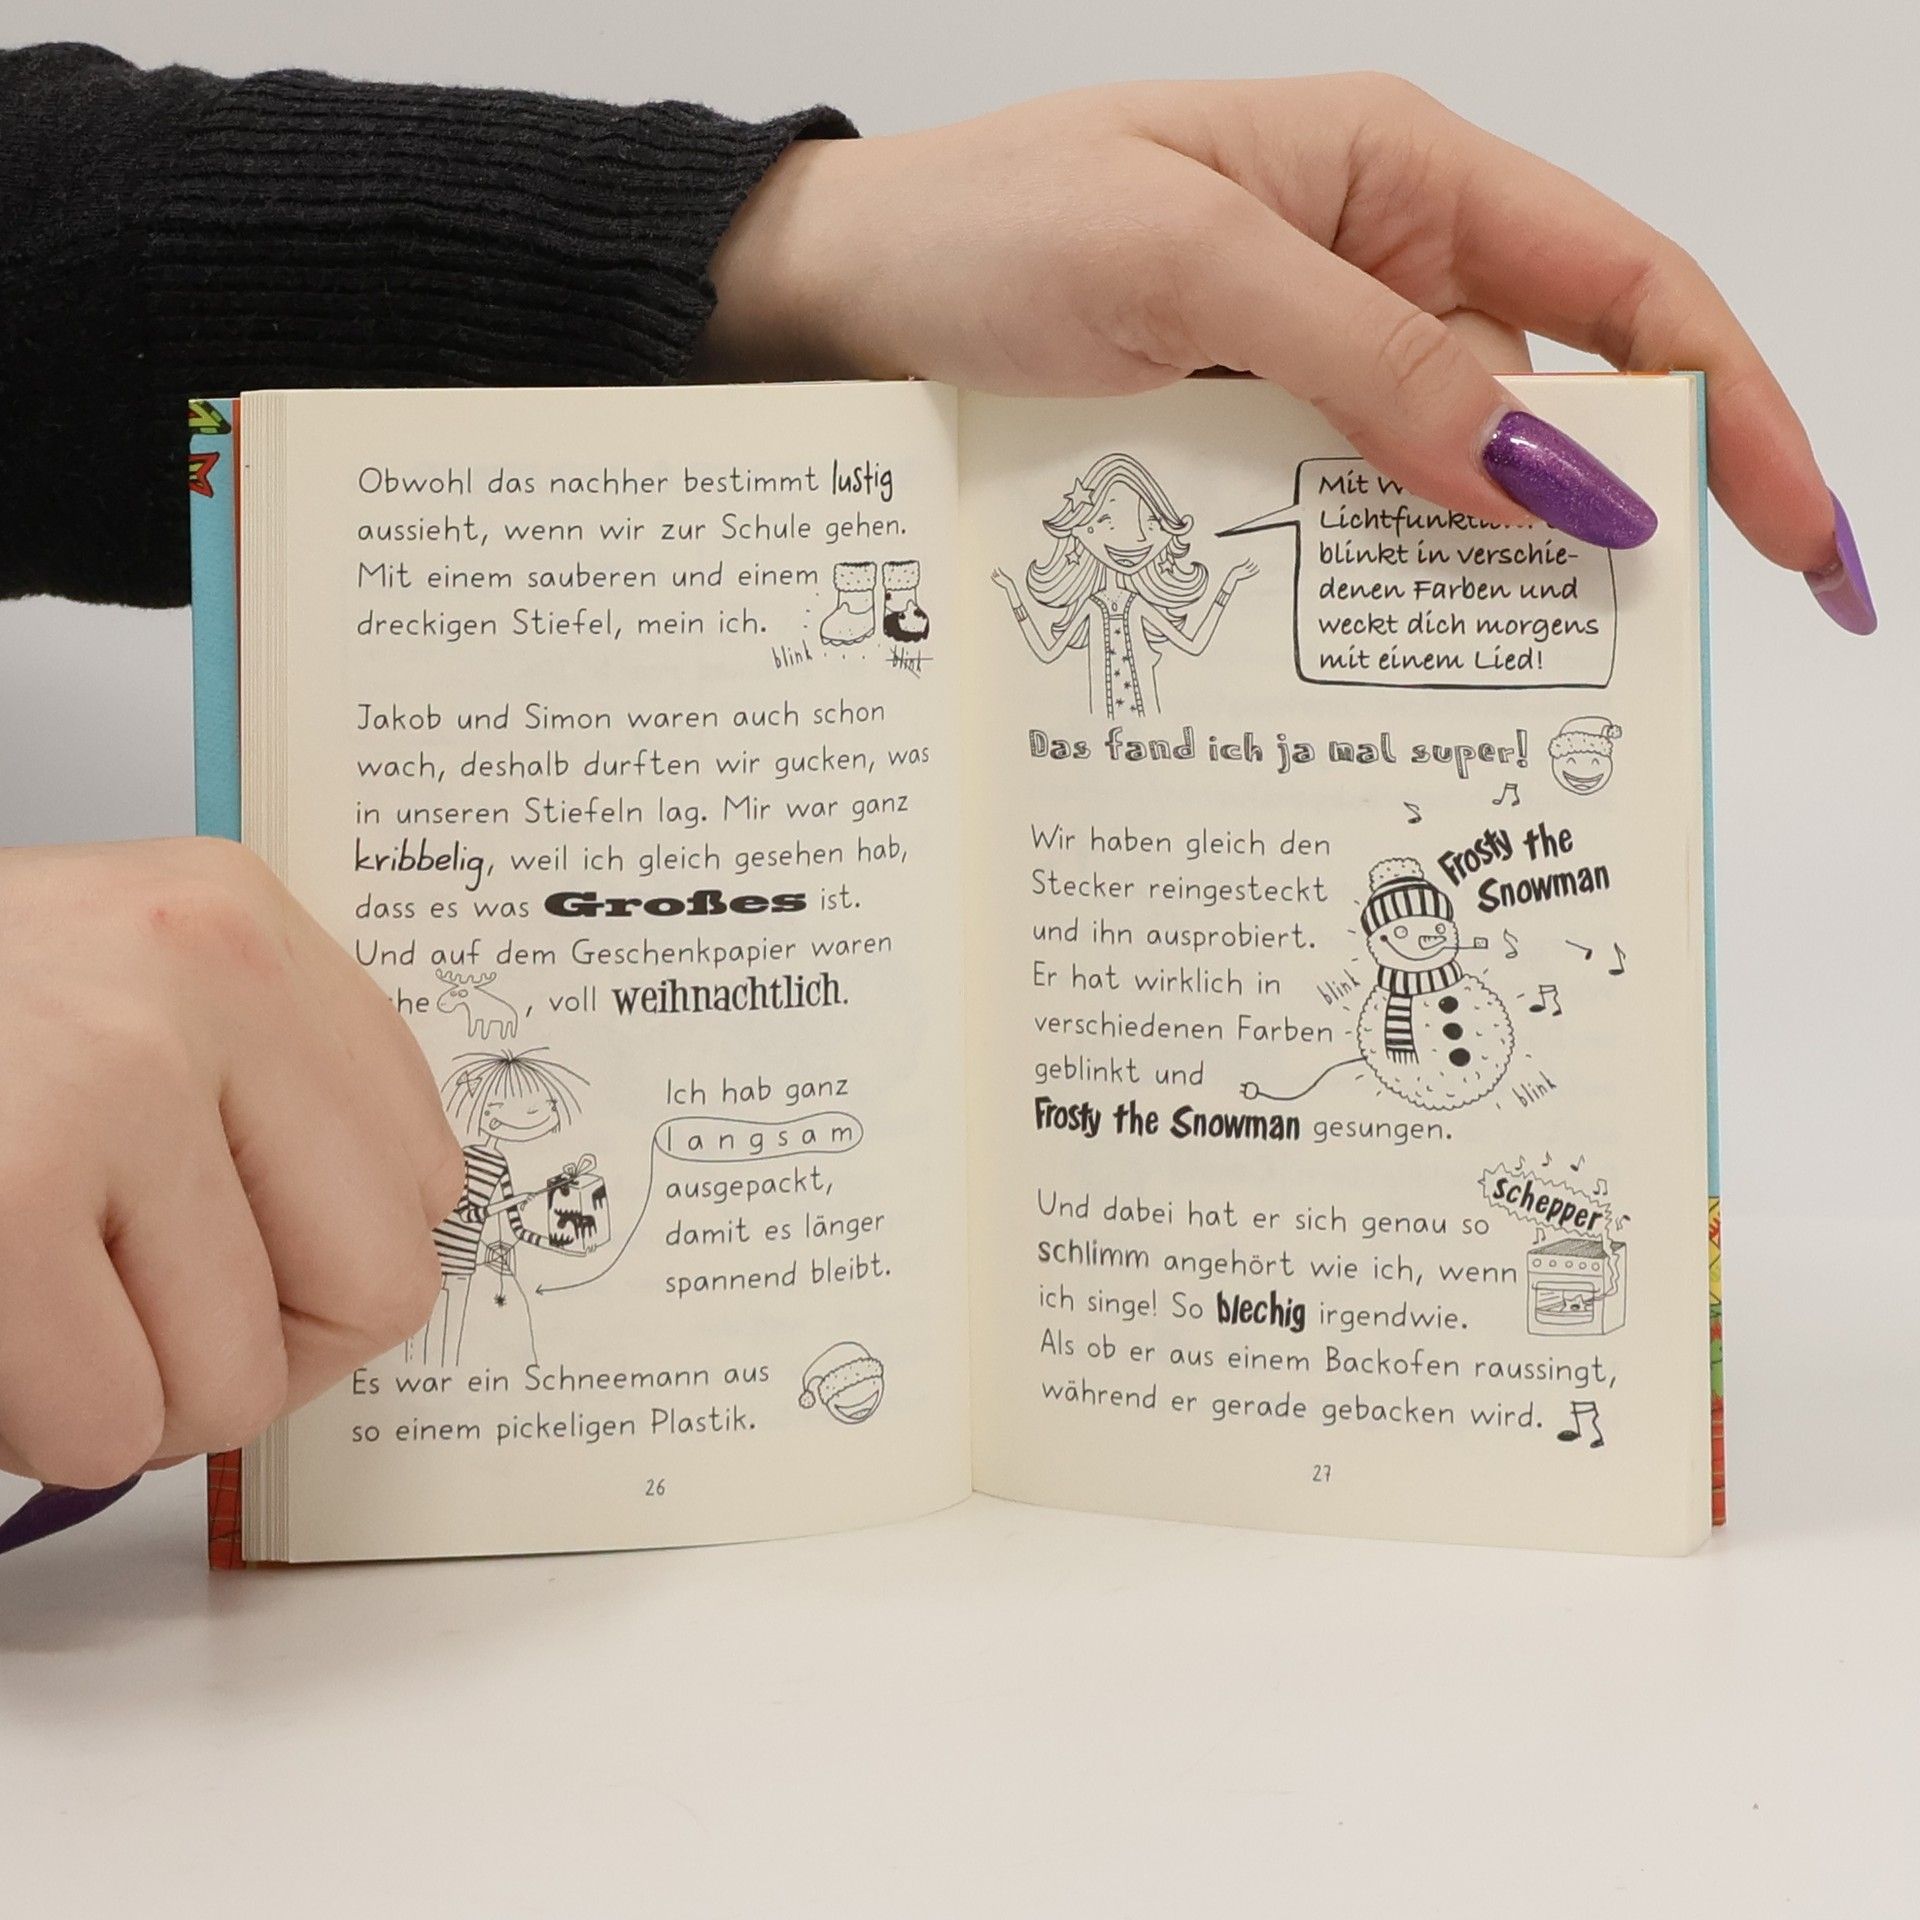 Obwohl das nachher bestimmt lustig
aussieht, wenn wir zur Schule gehen.
Mit einem sauberen und einem
dreckigen Stiefel, mein ich.
blink
blink
Jakob und Simon waren auch schon
wach, deshalb durften wir gucken, was
in unseren Stiefeln lag. Mir war ganz
kribbelig, weil ich gleich gesehen hab,
dass es was Großes ist.
Und auf dem Geschenkpapier waren
, voll weihnachtlich.
Ich hab ganz
langsam
ausgepackt,
damit es länger
spannend bleibt.
Es war ein Schneemann aus
so einem pickeligen Plastik.
26
Mit
blinkt in verschie-
denen Farben und
weckt dich morgens
mit einem Lied!
Das fand ich ja mal super!
Wir haben gleich den
Stecker reingesteckt
und ihn ausprobiert.
Er hat wirklich in
verschiedenen Farben
geblinkt und
Frosty the Snowman gesungen.
Frosty the
Snowman
blink
blink
Und dabei hat er sich genau so
schlimm angehört wie ich, wenn
ich singe! So blechig irgendwie.
Als ob er aus einem Backofen raussingt,
während er gerade gebacken wird.
schepper
27